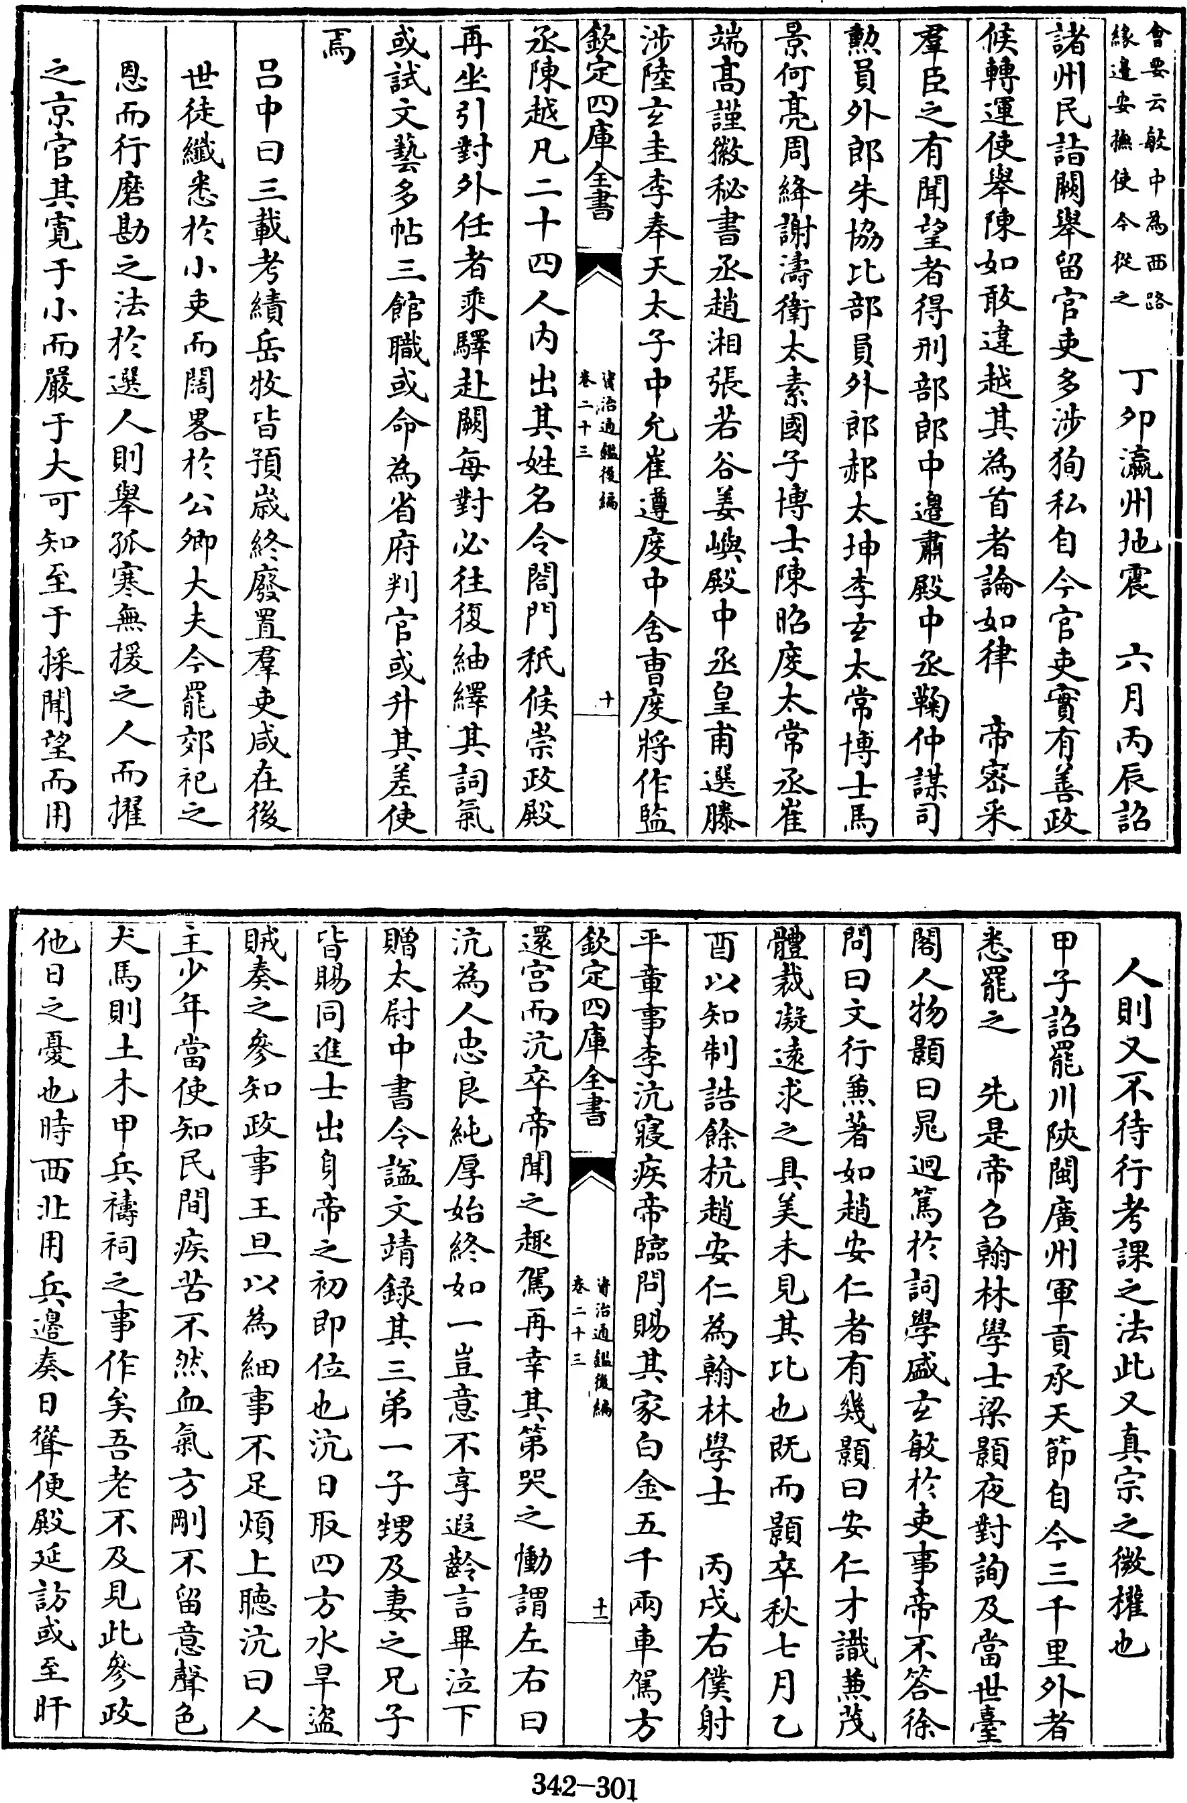 會要云敏中為西路
緣邊安撫使今從之
丁卯瀛州地震　六月丙辰詔
諸州民詣闕舉留官吏多涉狥私自今官吏實有善政
候轉運使舉陳如敢違越其為首者論如律　帝密采
羣臣之有聞望者得刑部郎中邊肅殿中丞鞠仲謀司
勲員外郎朱協比部員外郎郝太坤李玄太常博士馬
景何亮周絳謝濤衛太素國子博士陳昭度太常丞崔
端高謹徽秘書丞趙湘張若谷姜嶼殿中丞皇甫選滕
涉陸玄圭李奉天太子中允崔遵度中舍曹度將作監
欽定四庫全書
資治通鑑後編
卷二十三
十
丞陳越凡二十四人内出其姓名令閤門秖候崇政殿
再坐引對外任者乘驛赴闕每對必往復紬繹其詞氣
或試文藝多帖三館職或命為省府判官或升其差使
焉
呂中曰三載考績岳牧皆預歳終廢置羣吏咸在後
世徒纎悉於小吏而闊畧於公卿大夫今罷郊祀之
恩而行磨勘之法於選人則舉孤寒無援之人而擢
之京官其寛于小而嚴于大可知至于採聞望而用
人則又不待行考課之法此又真宗之微權也
甲子詔罷川陜閩廣州軍貢承天節自今三千里外者
悉罷之　先是帝召翰林學士梁顥夜對詢及當世臺
閣人物顥曰晁迥篤於詞學盛玄敏於吏事帝不答徐
問曰文行兼著如趙安仁者有幾顥曰安仁才識兼茂
體裁凝遠求之具美未見其比也既而顥卒秋七月乙
酉以知制誥餘杭趙安仁為翰林學士　丙戌右僕射
平章事李沆寢疾帝臨問賜其家白金五千兩車駕方
欽定四庫全書
資治通鑑後編
卷二十三
十一
還宫而沆卒帝聞之趣駕再幸其第哭之慟謂左右曰
沆為人忠良純厚始終如一豈意不享遐齡言畢泣下
贈太尉中書令謚文靖録其三弟一子甥及妻之兄子
皆賜同進士出身帝之初即位也沆日取四方水旱盜
賊奏之參知政事王旦以為細事不足煩上聽沆曰人
主少年當使知民間疾苦不然血氣方剛不留意聲色
犬馬則土木甲兵禱祠之事作矣吾老不及見此參政
他日之憂也時西北用兵邉奏日聳便殿延訪或至旰
342-301